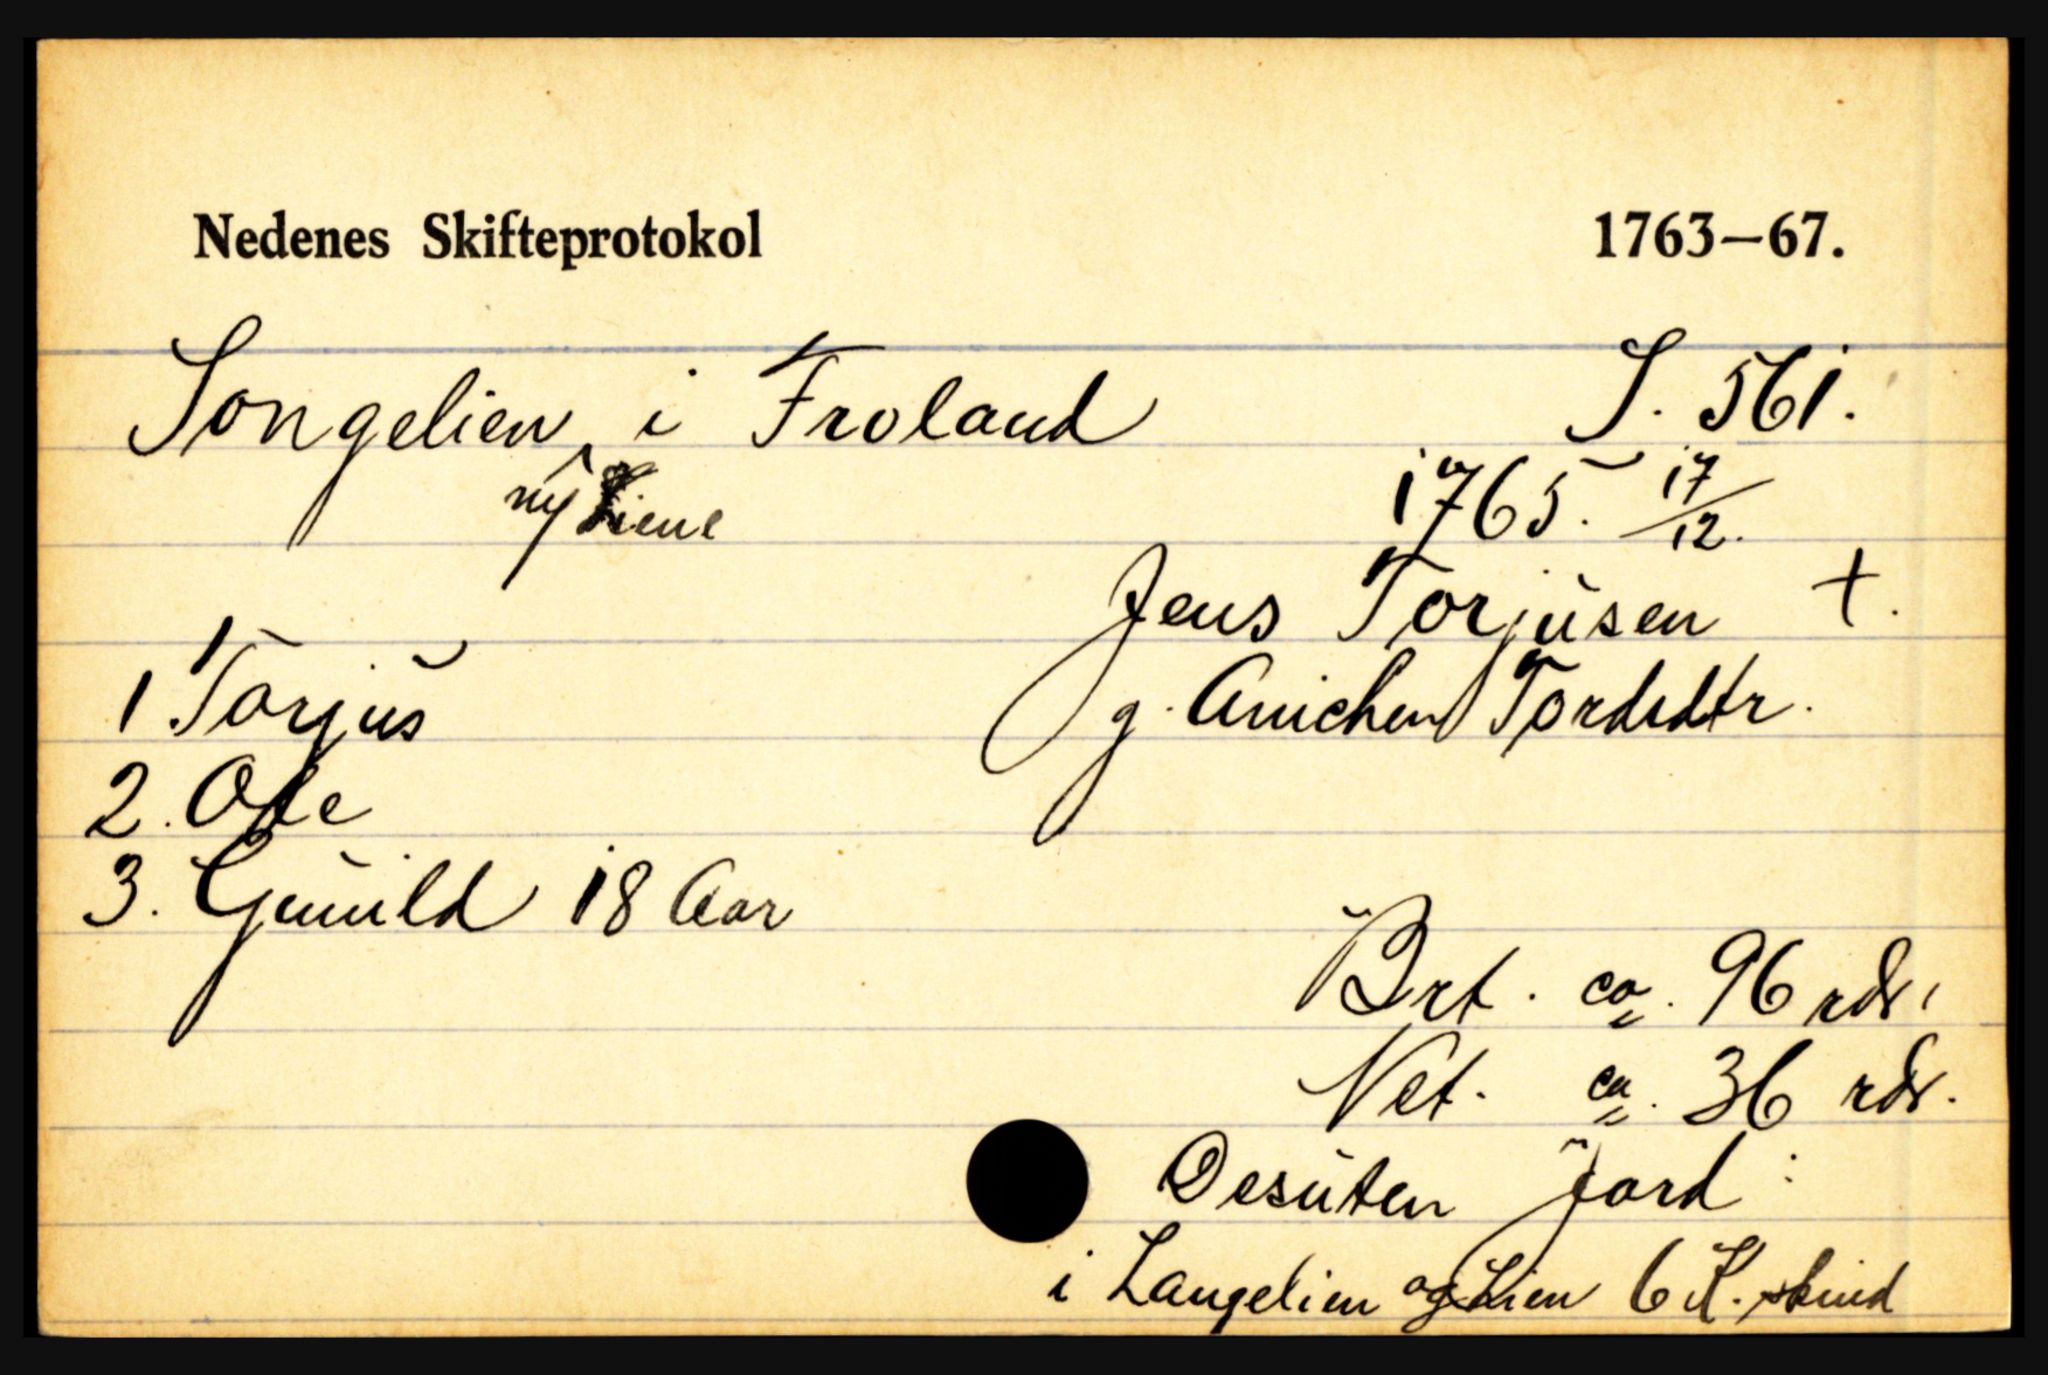 Nedenes Skifteprotokol 1763—67.
Songelien i Froland S. 561.
ny Liene 1765. 17/12.
Jens Torjusen †.
1 Torjus g. Anichen Tordsdtr.
2. Ole
3. Gunild 18 Aar
Brt. ca. 96 rdr.
Net. ca. 36 rdr.
Desuten Jord :
i Langelien og Lien 6 K. skind